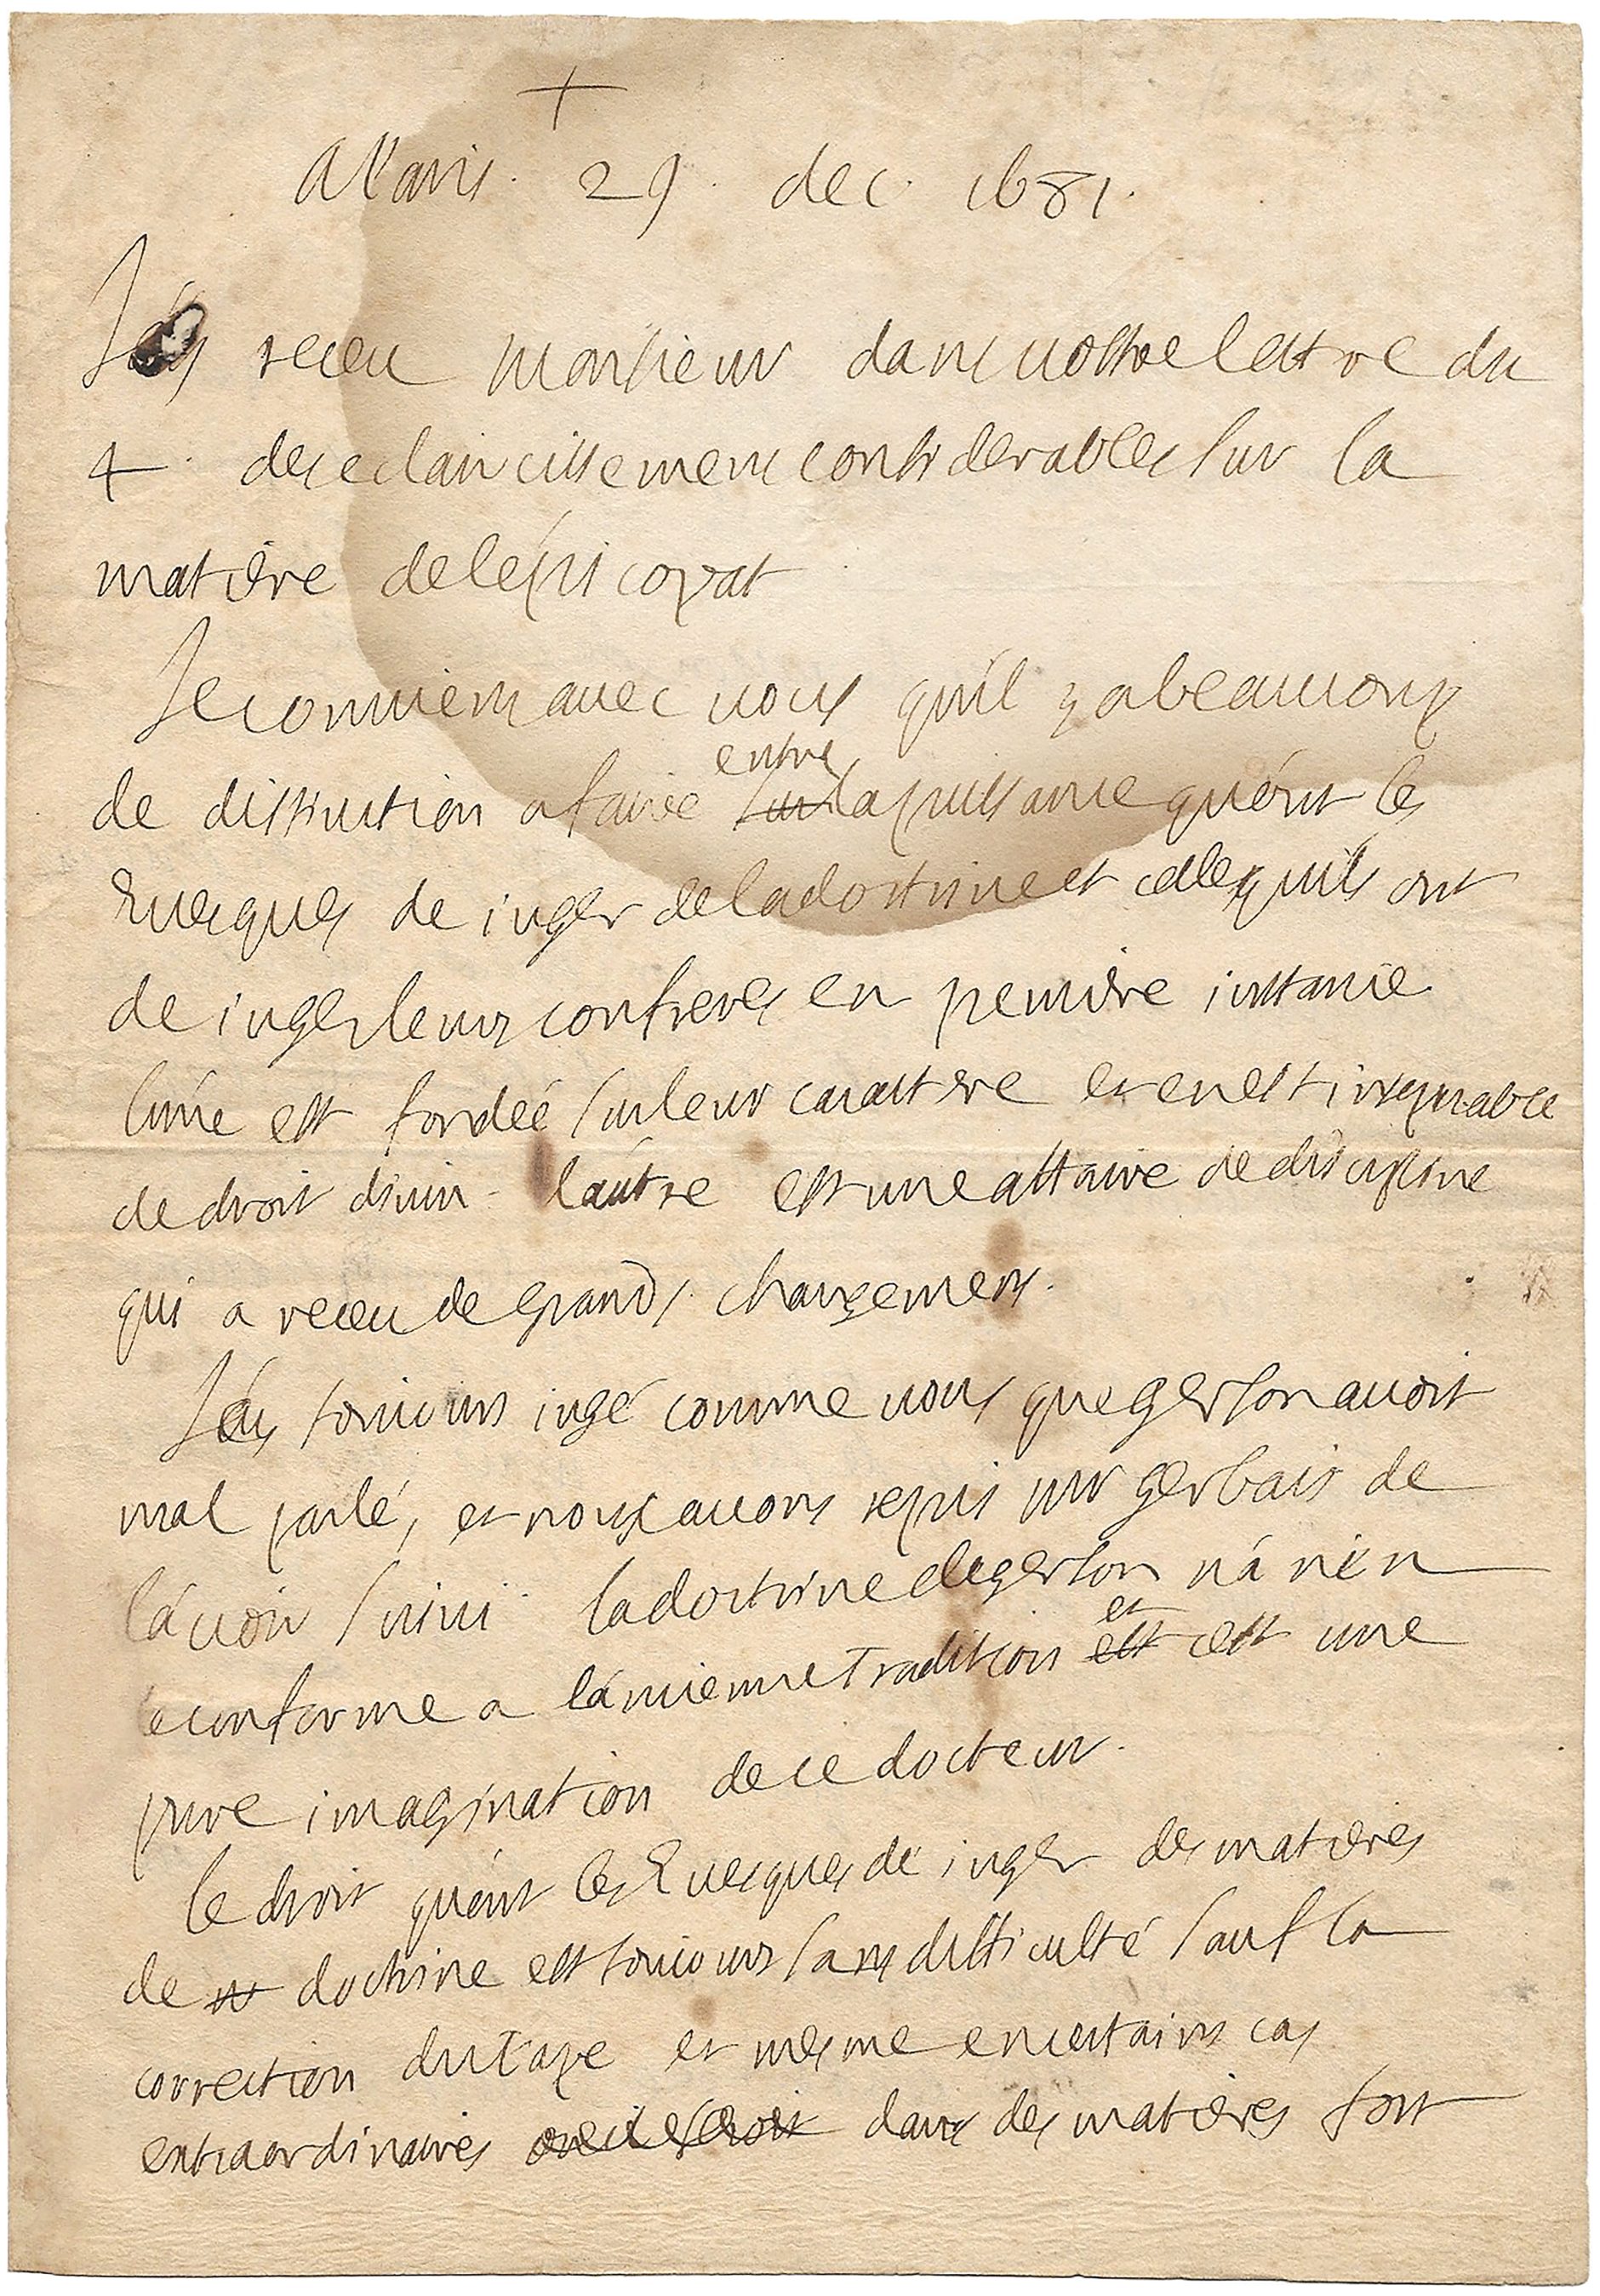 +
A Paris. 29. dec. 1681.
J'ay receu monsieur dans vostre lettre du
4. des eclaircissemens considerables sur la
matiere de l'épiscopat
Je conviens avec vous qu'il y a beaucoup
de distinction a faire entre sur la puissance qu'ont les
Evesques de iuger de la doctrine et celle qu'ils ont
de iuger leurs confreres en premiere instance
l'une est fondée sur leur caractere et en est inseparable
de droit divin. l'autre est une affaire de discipline
qui a receu de grands changemens.
J'ay tousiours iugé comme vous que gerson avoit
mal parlé, et nous avons repris mr gerbais de
l'avoir suivi. la doctrine de gerson n'a rien
de conforme a l'ancienne Tradition et est c'est une
pure imagination de ce docteur.
le droit qu'ont les Evesques de iuger des matieres
de doctrine est tousiours sans difficulté sauf la
correction du Pape et mesme en certains cas
extraordinaires dans des matieres fort